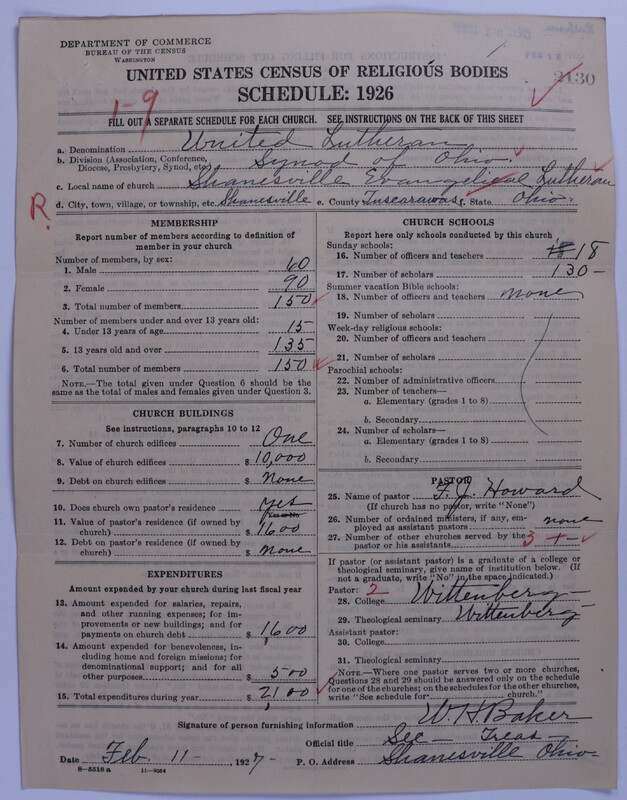 DEPARTMENT OF COMMERCE
BUREAU OF THE CENSUS
WASHINGTON
UNITED STATES CENSUS OF RELIGIOUS BODIES
SCHEDULE: 1926
2130
1-9
FILL OUT A SEPARATE SCHEDULE FOR EACH CHURCH. SEE INSTRUCTIONS ON THE BACK OF THIS SHEET
a. Denomination United Lutheran
b. Division (Association, Conference, Diocese, Presbytery, Synod, etc.) Synod of Ohio
c. Local name of church Shanesville Evangelical Lutheran
R. d. City, town, village, or township, etc. Shanesville e. County Tuscarawas f. State Ohio.
MEMBERSHIP
Report number of members according to definition of member in your church
Number of members, by sex:
1. Male 60
2. Female 90
3. Total number of members 150
Number of members under and over 13 years old:
4. Under 13 years of age 15
5. 13 years old and over 135
6. Total number of members 150
NOTE.—The total given under Question 6 should be the same as the total of males and females given under Question 3.
CHURCH BUILDINGS
See instructions, paragraphs 10 to 12
7. Number of church edifices One
8. Value of church edifices $ 10,000
9. Debt on church edifices $ None
10. Does church own pastor's residence? Yes
11. Value of pastor's residence (if owned by church) $ 1600
12. Debt on pastor's residence (if owned by church) $ None
EXPENDITURES
Amount expended by your church during last fiscal year
13. Amount expended for salaries, repairs, and other running expenses; for improvements or new buildings; and for payments on church debt $ 1,600
14. Amount expended for benevolences, including home and foreign missions; for denominational support; and for all other purposes $ 500
15. Total expenditures during year $ 2100
CHURCH SCHOOLS
Report here only schools conducted by this church
Sunday schools:
16. Number of officers and teachers 18 18
17. Number of scholars 130-
Summer vacation Bible schools:
18. Number of officers and teachers none
19. Number of scholars
Week-day religious schools:
20. Number of officers and teachers
21. Number of scholars
Parochial schools:
22. Number of administrative officers
23. Number of teachers—
a. Elementary (grades 1 to 8)
b. Secondary
24. Number of scholars—
a. Elementary (grades 1 to 8)
b. Secondary
PASTOR
25. Name of pastor F. J. Howard
(If church has no pastor, write "None")
26. Number of ordained ministers, if any, employed as assistant pastors none
27. Number of other churches served by the pastor or his assistants 3
If pastor (or assistant pastor) is a graduate of a college or theological seminary, give name of institution below. (If not a graduate, write "No" in the space indicated.)
Pastor: 2
28. College Wittenberg
29. Theological seminary Wittenberg
Assistant pastor:
30. College
31. Theological seminary
NOTE.—Where one pastor serves two or more churches, Questions 28 and 29 should be answered only on the schedule for one of the churches; on the schedules for the other churches, write "See schedule for church."
Signature of person furnishing information W. H. Baker
Official title Sec - Treas -
Date Feb. 11 -, 1927- P. O. Address Shanesville Ohio-
8-5518 a 11-9364